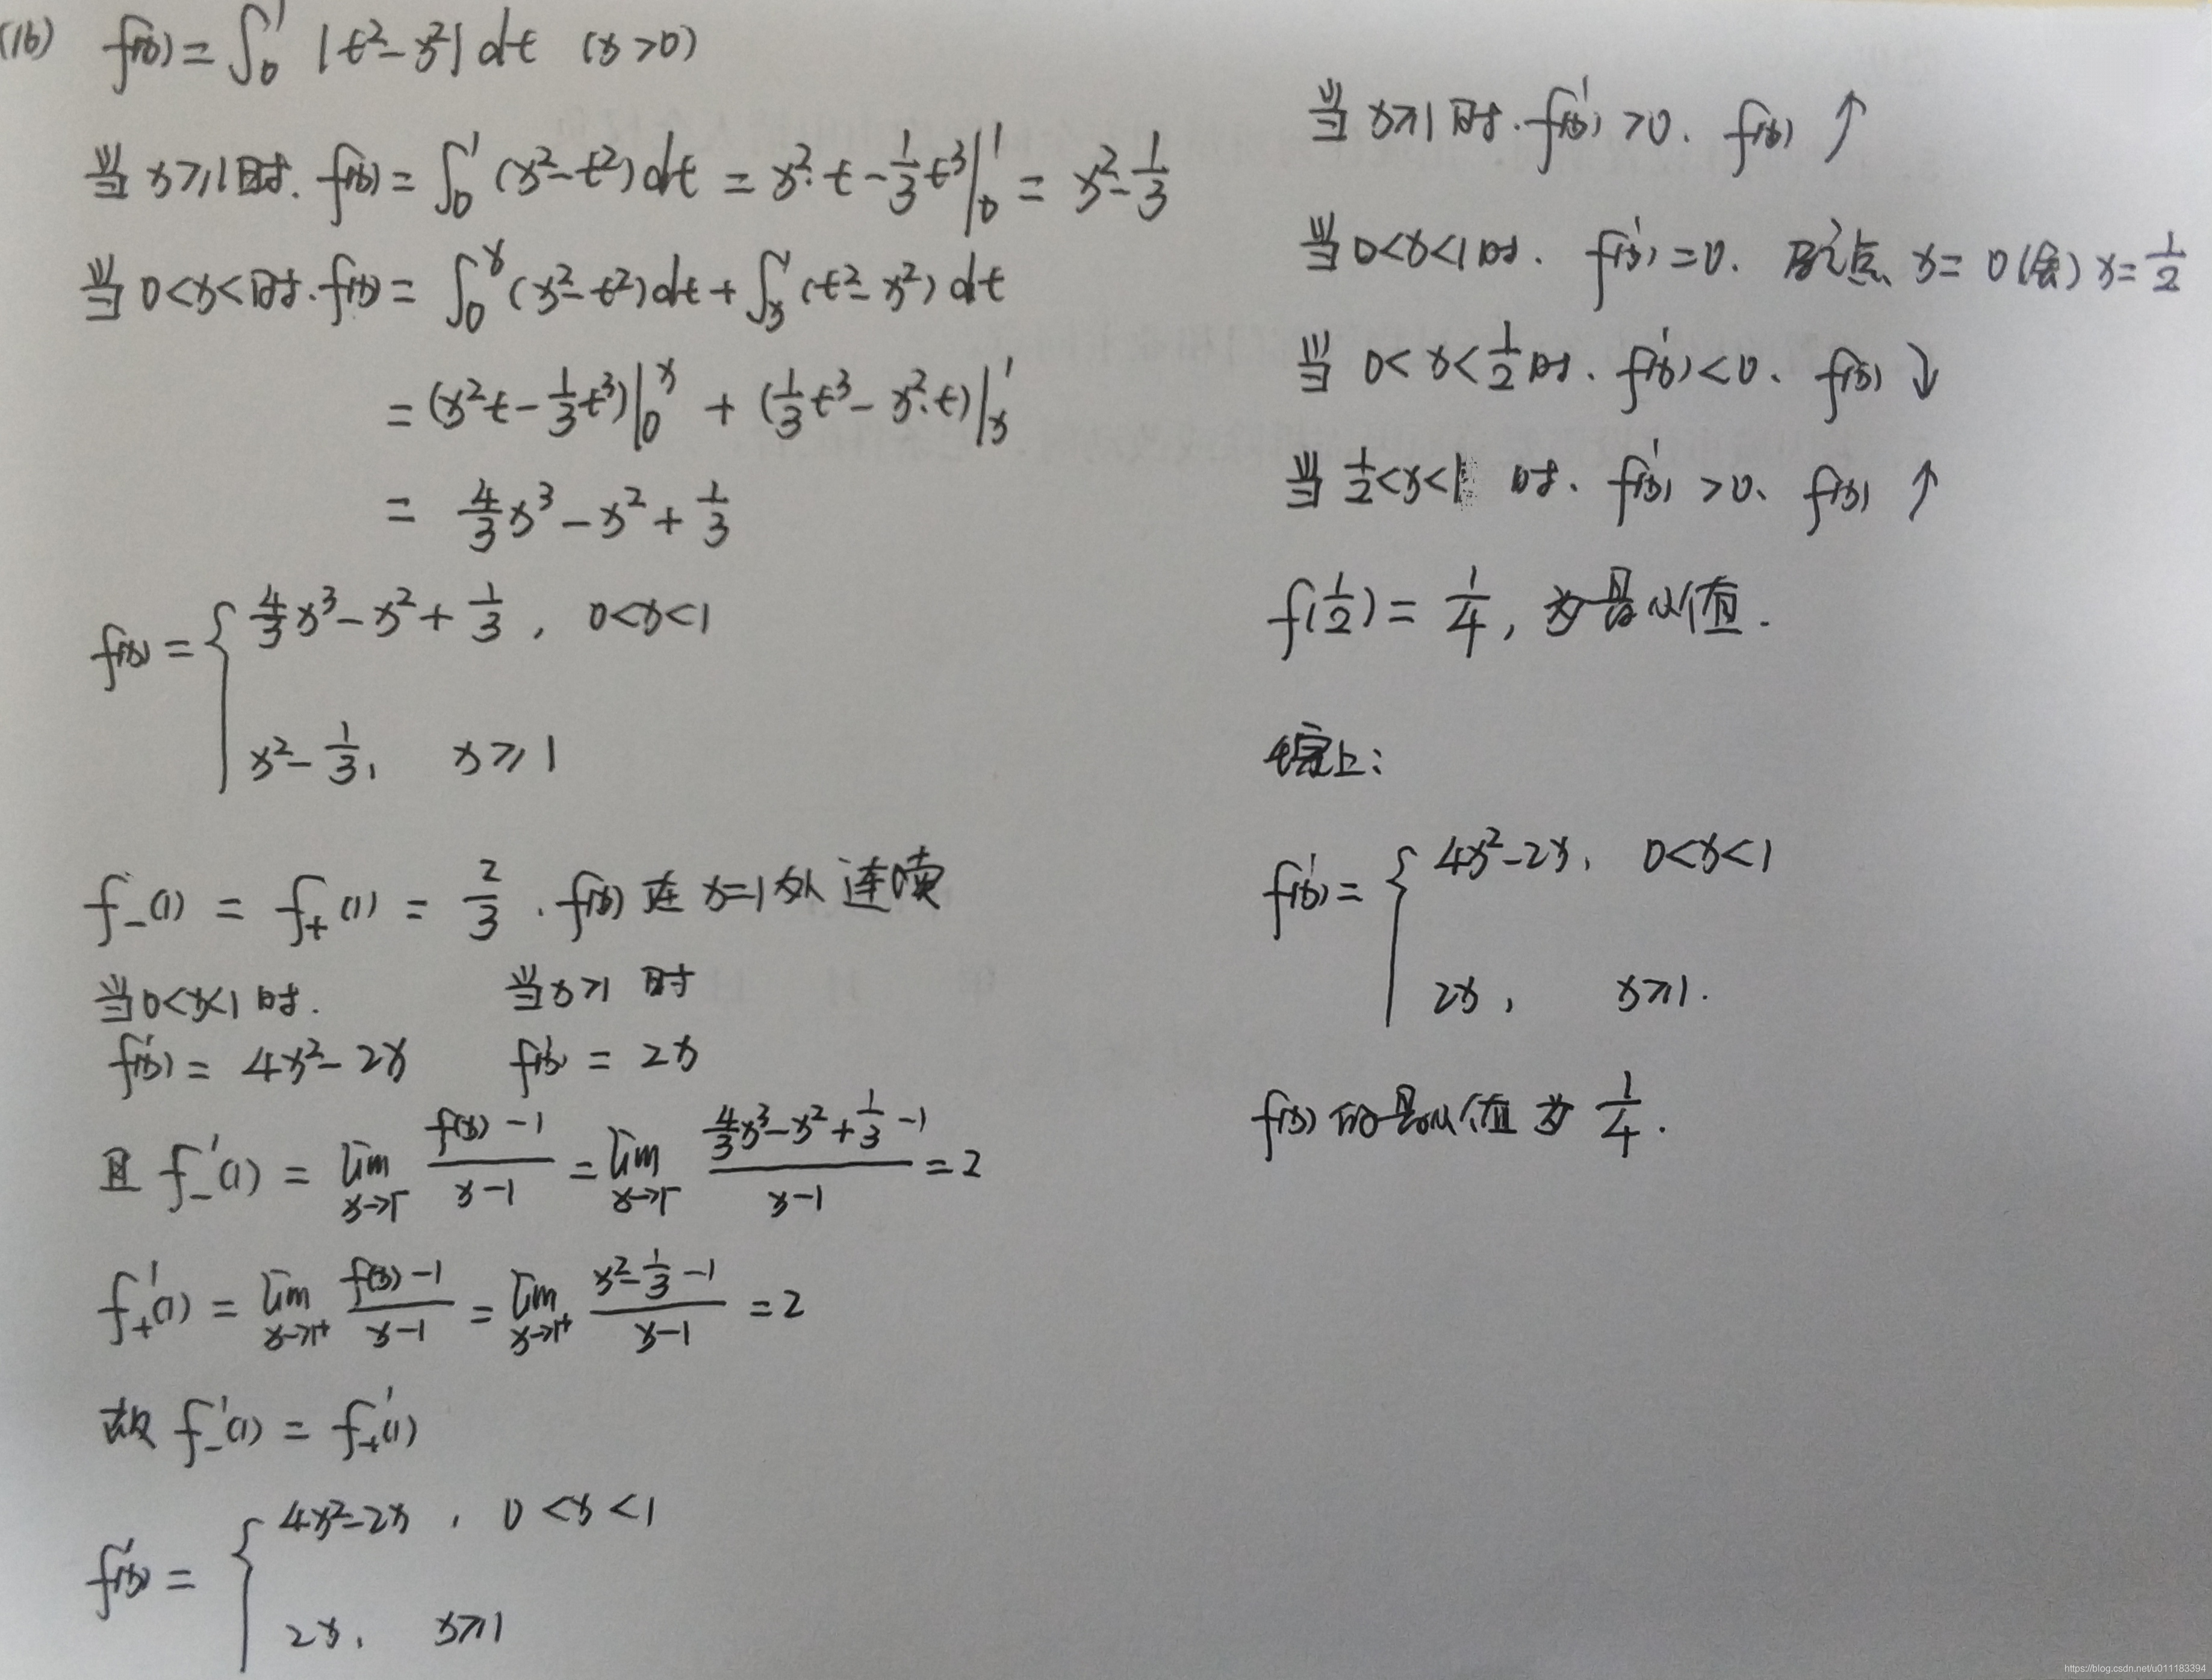 (16) f(x) = ∫₀¹ |t²-x²| dt (x>0)
当 x≥1时. f(x) = ∫₀¹ (x²-t²)dt = x²·t - 1/3 t³|₀¹ = x² - 1/3
当 0<x<1时. f(x) = ∫₀ˣ (x²-t²)dt + ∫ₓ¹ (t²-x²) dt
= (x²t - 1/3 t³)|₀ˣ + (1/3 t³ - x²·t)|ₓ¹
= 4/3 x³ - x² + 1/3
f(x) = { 4/3 x³ - x² + 1/3 , 0<x<1
x² - 1/3, x≥1
f₋(1) = f₊(1) = 2/3 . f(x) 在 x=1处 连续
当0<x<1时. 当x>1 时
f'(x) = 4x²-2x f'(x) = 2x
且 f₋'(1) = lim x→1⁻ (f(x)-1)/(x-1) = lim x→1⁻ (4/3 x³ - x² + 1/3 - 1)/(x-1) = 2
f₊'(1) = lim x→1⁺ (f(x)-1)/(x-1) = lim x→1⁺ (x² - 1/3 - 1)/(x-1) = 2
故 f₋'(1) = f₊'(1)
f'(x) = { 4x²-2x , 0<x<1
2x, x≥1
当 x≥1 时. f'(x) >0. f(x) ↑
当 0<x<1时. f'(x) =0. 驻点 x= 0(舍) x= 1/2
当 0<x<1/2 时. f'(x)<0. f(x) ↓
当 1/2<x<1 时. f'(x) >0. f(x) ↑
f(1/2) = 1/4, 为最小值.
综上:
f'(x) = { 4x²-2x, 0<x<1
2x, x≥1.
f(x) 的最小值为 1/4.
https://blog.csdn.net/u011183394